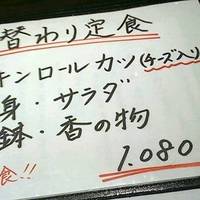 替わり定食
キンロールカツ(チーズ入り
身・サラダ
鉢・香の物
1.080
食!!